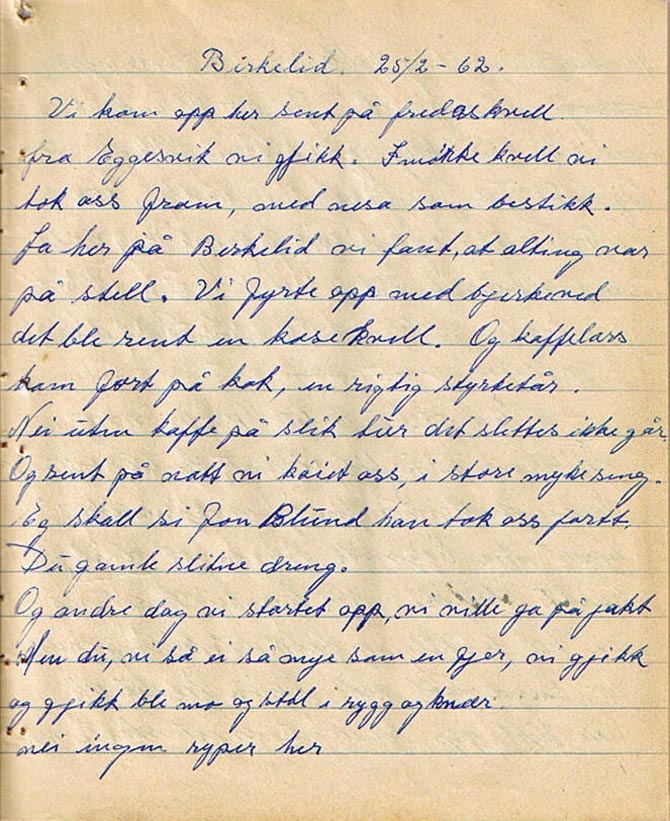 Birkelid. 25/2 - 62.
Vi kom opp her sent på fredaskvell
fra Eggesvik vi gjikk. I mørkte kvell vi
tok oss fram, med nesa som bestikk.
Ja her på Birkelid vi fant, at alting var
på stell. Vi fyrte opp med bjerkeved
det ble rent en kose kvell. Og kaffelars
kom fort på kok, en rigtig styrketår.
Nei uten kaffe på slik tur det slettes ikke går,
Og sent på natt vi køiet oss, i store myke seng.
Eg skall si Jon Blund han tok oss fortt,
Du gamle slitne dreng.
Og andre dag vi startet opp, vi ville ga på jakt
Men du, vi så ei så mye som en fjer, vi gjikk
og gjikk ble mo og støl i rygg og knær.
nei ingen ryper her